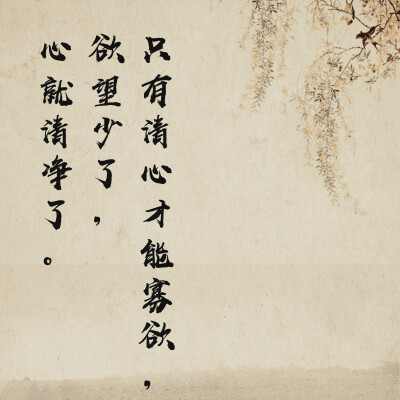 只有清心才能寡欲，
欲望少了，
心就清净了。